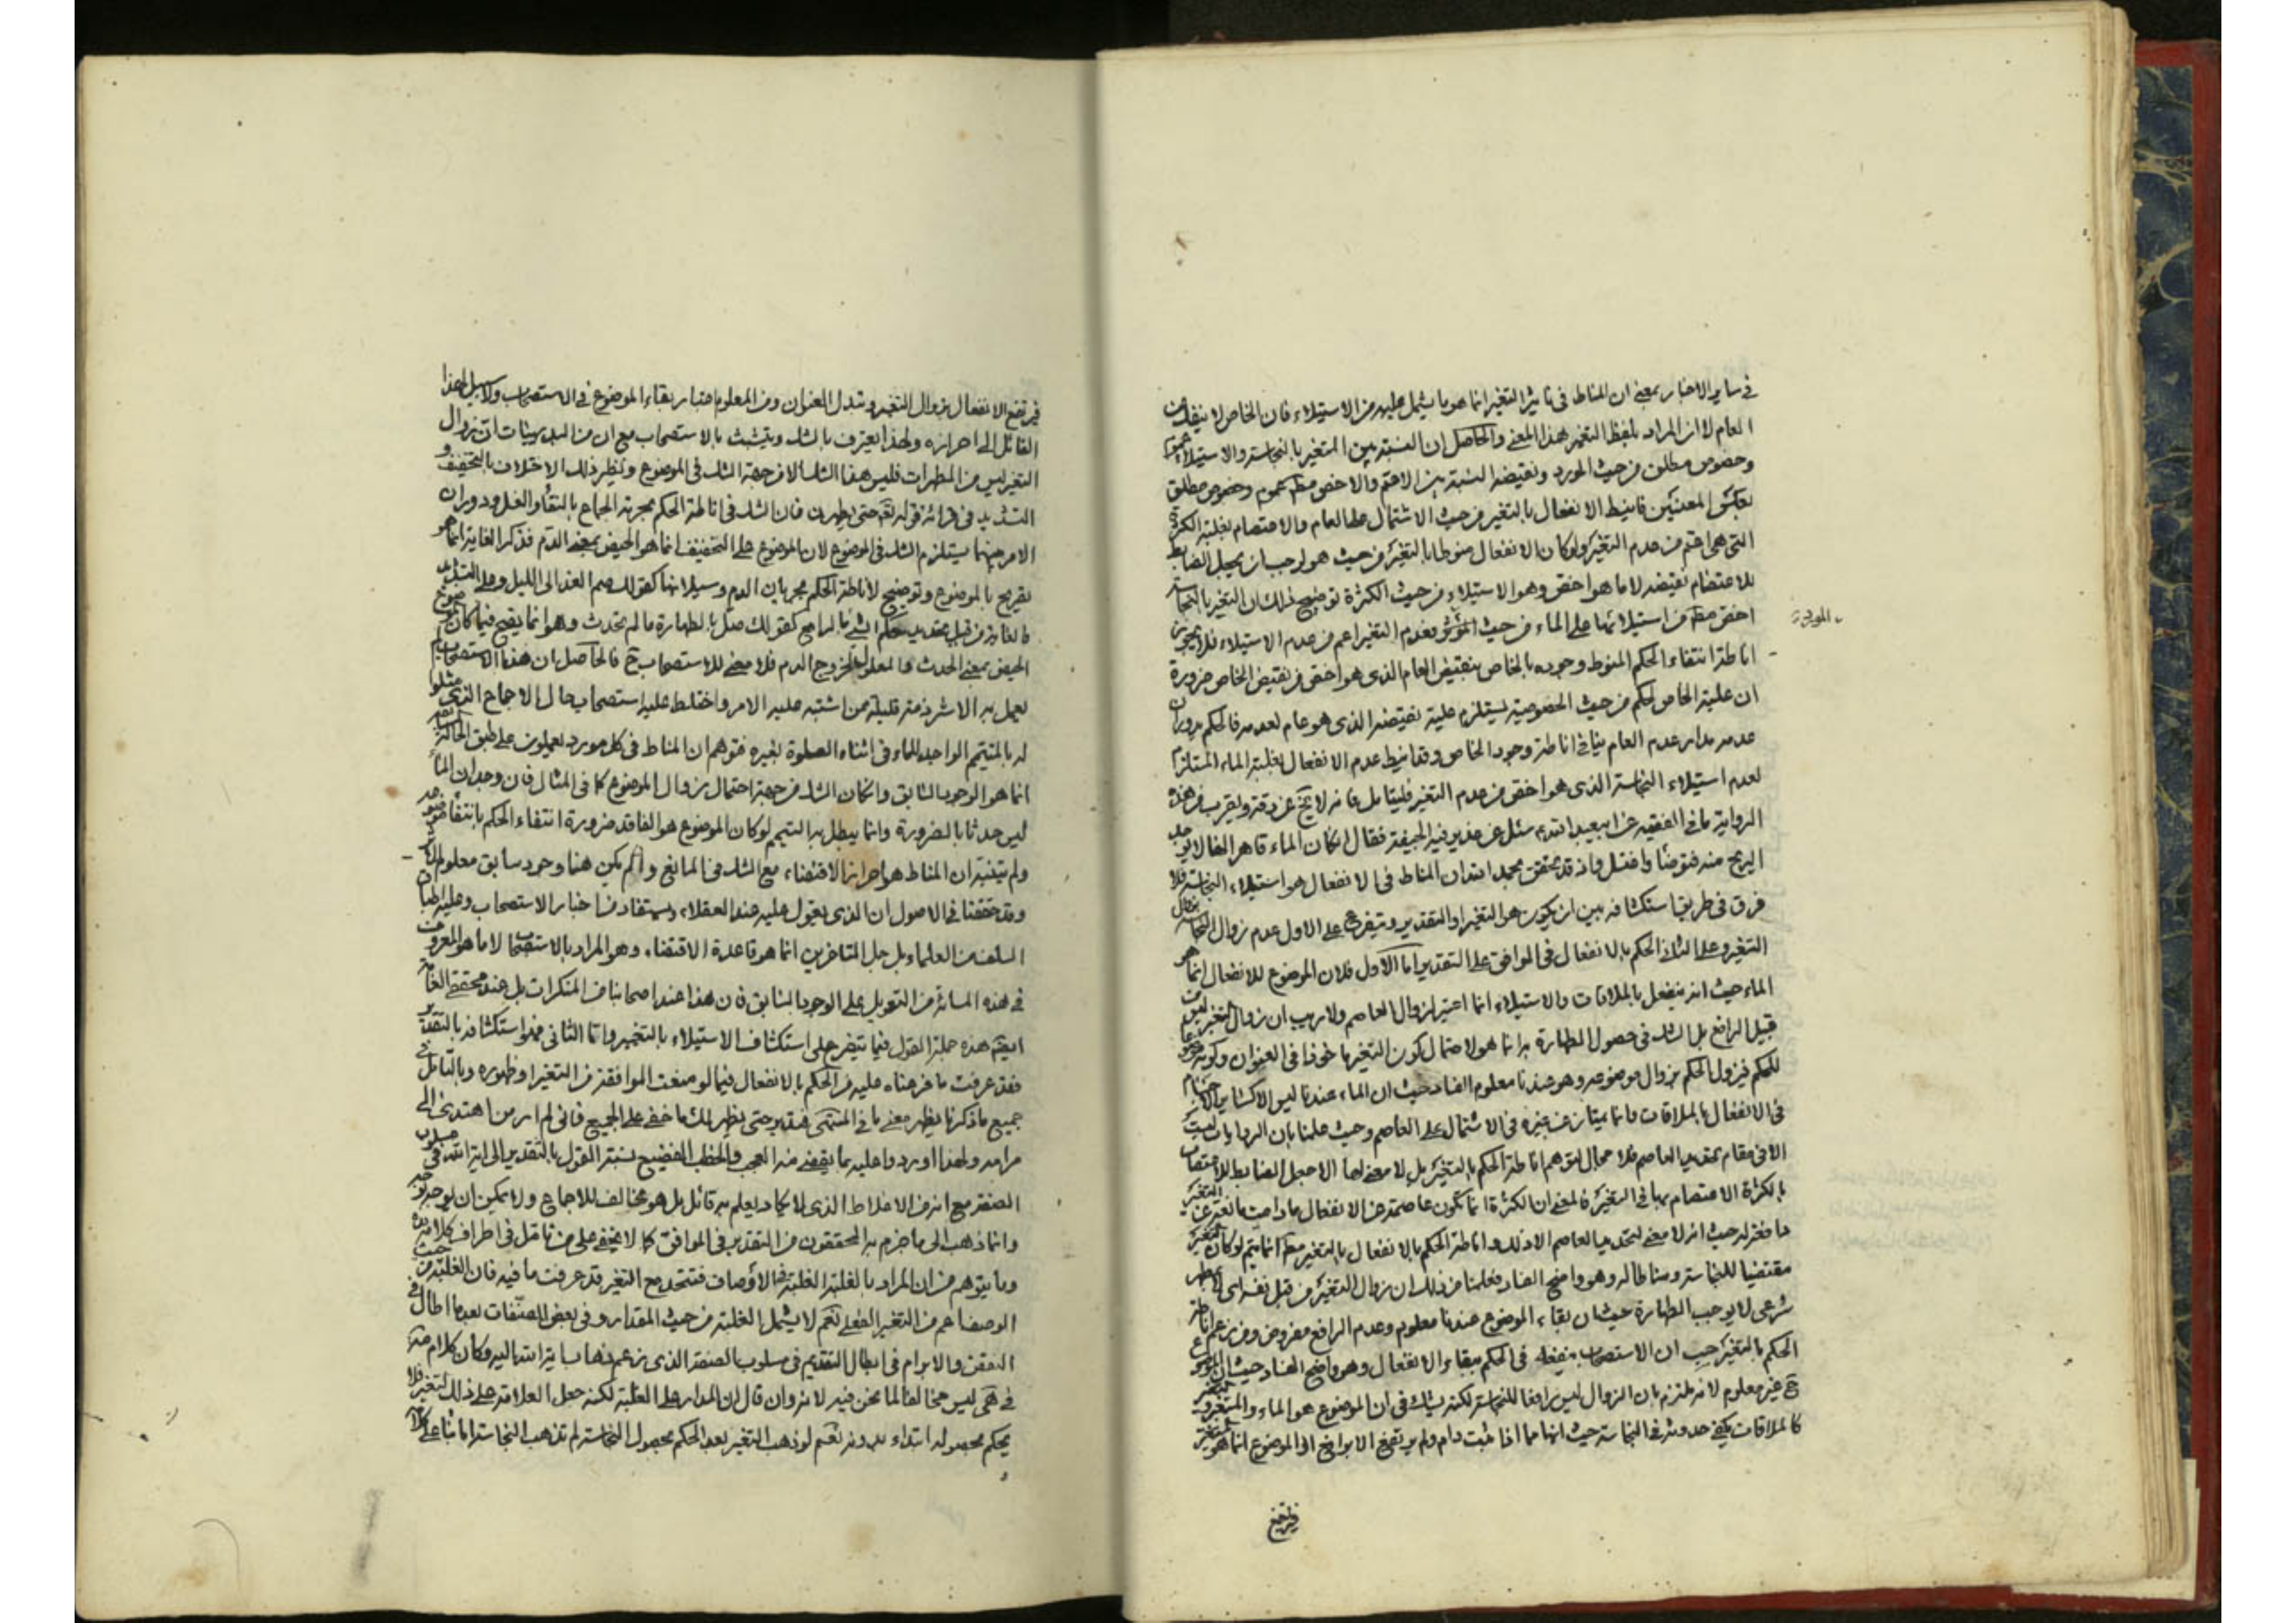 في ساير الاخبار بمعنى ان المناط في تاثير التغير انما هو ما يشمل عليه من الاستيلاء فان الخاص لا ينفك عن
العام لا ان المراد بلفظ التغير هذا المعنى والحاصل ان النسبة بين التغير بالنجاسة والاستيلاء عموم
وخصوص مطلق من حيث المورد ونقيضه النسبة بين الاعم والاخص مط عموم وخصوص مطلق
بعكس المعنيين فانيط الانفعال بالتغير من حيث الاشتمال على العام والاعتصام بغلبة الكثرة
التي هي اعم من عدم التغير ولو كان الانفعال منوطا بالتغير من حيث هو لوجب ان يجعل الضابط
للاعتصام نقيضه لا ما هو اخص وهو الاستيلاء من حيث الكثرة توضيح ذلك ان التغير بالنجاسة
اخص مط من استيلائها على الماء من حيث المؤثر فعدم التغير اعم من عدم الاستيلاء فلا يجوز
اناطة انتفاء الحكم المنوط وجوده بالخاص بنقيض العام الذي هو اخص من نقيض الخاص ضرورة
ان علية الخاص لحكم من حيث الخصوصية يستلزم علية نقيضه الذي هو عام لعدمه فالحكم بدوران
عدمه مدار عدم العام ينافي اناطة وجود الخاص وقد انيط عدم الانفعال بغلبة الماء المستلزم
لعدم استيلاء النجاسة الذي هو اخص من عدم التغير فليتامل فانه لا يخ عن دقة ويقرب من هذه
الرواية ما في الفقيه عن ابيعبد الله سئل عن غدير فيه الجيفة فقال ان كان الماء قاهرا لها لا يوجد
الريح منه فتوضأ واغتسل واذ قد تحقق بحمد الله ان المناط في الانفعال هو استيلاء النجاسة فلا
فرق في طريق استكشافه بين ان يكون هو التغير او التقدير ويتفرع على الاول عدم زوال النجاسة بزوال
التغير وعلى الثاني الحكم بالانفعال في الموافق على التقدير اما الاول فلان الموضوع للانفعال انما هو
الماء حيث انه ينفعل بالملاقات والاستيلاء انما اعتبر لزوال العاصم ولا ريب ان زوال التغير ليس من
قبيل الرافع بل الشك في حصول الطهارة به انما هو لاحتمال كون التغير ماخوذا في العنوان وكونه موضوعا
للحكم فيزول الحكم بزوال موضوعه وهو عندنا معلوم الفساد حيث ان الماء عندنا ليس الا كساير الاجسام
في الانفعال بالملاقات وانما يمتاز عن غيره في الاشتمال على العاصم وحيث علمنا بان الروايات ليست
الا في مقام تحديد العاصم فلا مجال لتوهم اناطة الحكم بالتغير بل لا معنى لها الا جعل الضابط للاعتصام
بالكثرة الاعتصام بها في التغير فالمعنى ان الكثرة انما تكون عاصمة عن الانفعال ما دامت مانعة عن التغير
مقتضيا للنجاسة ومناطا له وهو واضح الفساد فعلمنا من ذلك ان زوال التغير من قبل نفسه اي لا بمطهر
شرعي لا يوجب الطهارة حيث ان بقاء الموضوع عندنا معلوم وعدم الرافع مفروض ومن زعم اناطة
الحكم بالتغير حسب ان الاستصحاب ينفعه في الحكم ببقاء الانفعال وهو واضح الفساد حيث ان الموضوع
ح غير معلوم لانه ملتزم بان الزوال ليس رافعا للنجاسة لكنه يشك في ان الموضوع هو الماء والتغير
كالملاقات يكفي حدوثه في النجاسة حيث انها مما اذا ثبت دام ولم يرتفع الا برافع او الموضوع انما هو المتغير
فيرتفع
فيرتفع الانفعال بزوال التغير وتبدل العنوان ومن المعلوم اعتبار بقاء الموضوع في الاستصحاب ولا سبيل لهذا
القائل الى احرازه ولهذا يعترف بالشك ويتشبث بالاستصحاب مع ان من البديهيات ان زوال
التغير ليس من المطهرات فليس هذا الشك الا من جهة الشك في الموضوع ونظير ذلك الاختلاف بالتخفيف و
التشديد في قرائة قوله تعم حتى يطهرن فان الشك في اناطة الحكم بحرمة الجماع بالنقاء او الغسل ودوران
الامر بينهما يستلزم الشك في الموضوع لان الموضوع على التخفيف انما هو الحيض بمعنى الدم فذكر الغاية انما هو
تصريح بالموضوع وتوضيح لاناطة الحكم بجريان الدم وسيلانها كقولك صم الغد الى الليل وعلى التشديد
فالغاية من قبيل تحديد حكم الشئ بالرافع كقولك صل بالطهارة ما لم تحدث وهو انما يصح فيما كان الموضوع
الحيض بمعنى الحدث فالمعلول لخروج الدم فلا معنى للاستصحاب ح فالحاصل ان هذا الاستصحاب لم
يعمل به الا شرذمة قليلة ممن اشتبه عليه الامر واختلط عليه استصحاب حال الاجماع الذي مثلوا
له بالمتيمم الواجد للماء في اثناء الصلوة بغيره فتوهم ان المناط في كل مورد يعملون على طبق الحالة
انما هو الوجود السابق وان كان الشك من جهة احتمال زوال الموضوع كما في المثال فان وجدان الماء
ليس حدثا بالضرورة وانما يبطل به التيمم لو كان الموضوع هو الفاقد ضرورة انتفاء الحكم بانتفاء موضوعه
ولم يتنبه ان المناط هو احراز الاقتضاء مع الشك في المانع وان لم يكن هنا وجود سابق معلوم
وقد حققنا في الاصول ان الذي يعول عليه عند العقلاء ويستفاد من اخبار الاستصحاب وعليه اطباق
السلف من العلماء بل جل المتاخرين انما هو قاعدة الاقتضاء وهو المراد بالاستصحاب لا ما هو المعروف
في هذه المسالة من التعويل على الوجود السابق فان هذا عند اصحابنا من المنكرات بل عند محققي العامة
ايضا هذه جملة القول فيما يتفرع على استكشاف الاستيلاء بالتغير واما الثاني فهو استكشافه بالتقدير
فقد عرفت ما فرعناه عليه من الحكم بالانفعال فيما لو منعت الموافقة من التغير او ظهوره وبالتامل في
جميع ما ذكرنا يظهر معنى ما في المنتهى فتدبر حتى يظهر لك ما خفي على الجميع فاني لم ار من اهتدى الى
مرامه ولهذا اوردوا عليه بما يقضى منه العجب والخطب الفضيح نسبة القول بالتقدير الى اية الله في مسلوب
الصفة مع انه من الاغلاط الذي لا يكاد يعلم به قائل بل هو مخالف للاجماع ولا يمكن ان يوجد
وانما ذهب الى ما جزم به المحققون من التقدير في الموافق كما لا يخفى على من تامل في اطراف كلامه
وما يتوهم من ان المراد بالغلبة الغلبة في الاوصاف فتتحد مع التغير قد عرفت ما فيه فان الغلبة من حيث
الوصف اعم من التغير الفعلي نعم لا يشمل الغلبة من حيث المقدار وفي بعض المصنفات بعد ما اطال في
النقض والابرام في ابطال التقديم في مسلوب الصفة الذي زعم ذهاب اية الله اليه وكان كلامه
في هى ليس مخالفا لما نحن فيه لانه وان قال ان المدار على الغلبة لكنه جعل العلامة على ذلك التغير فلا
يحكم بحصوله ابتداء بدونه نعم لو ذهب التغير بعد الحكم بحصول النجاسة لم تذهب النجاسة